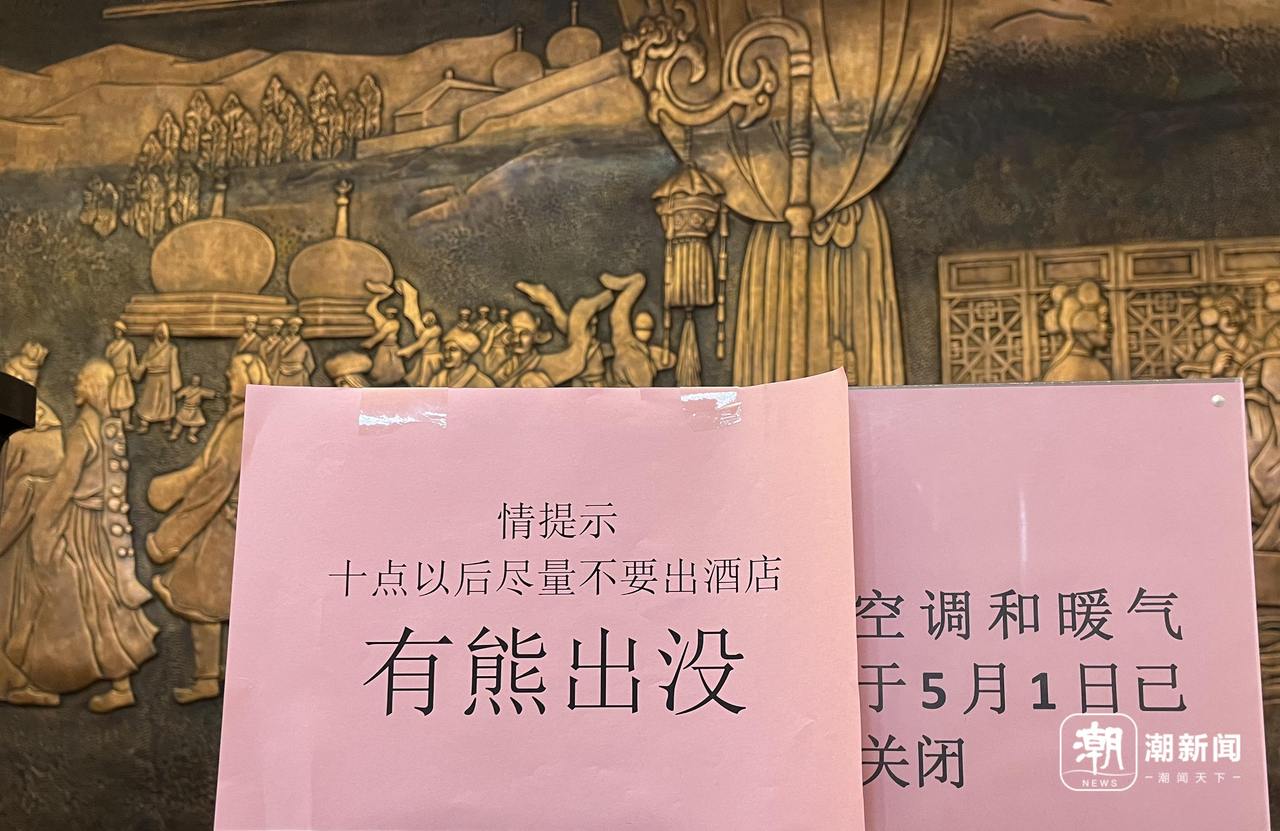 情提示
十点以后尽量不要出酒店
有熊出没
空调和暖气
于5月1日已
关闭
潮
NEWS
潮新闻
潮闻天下